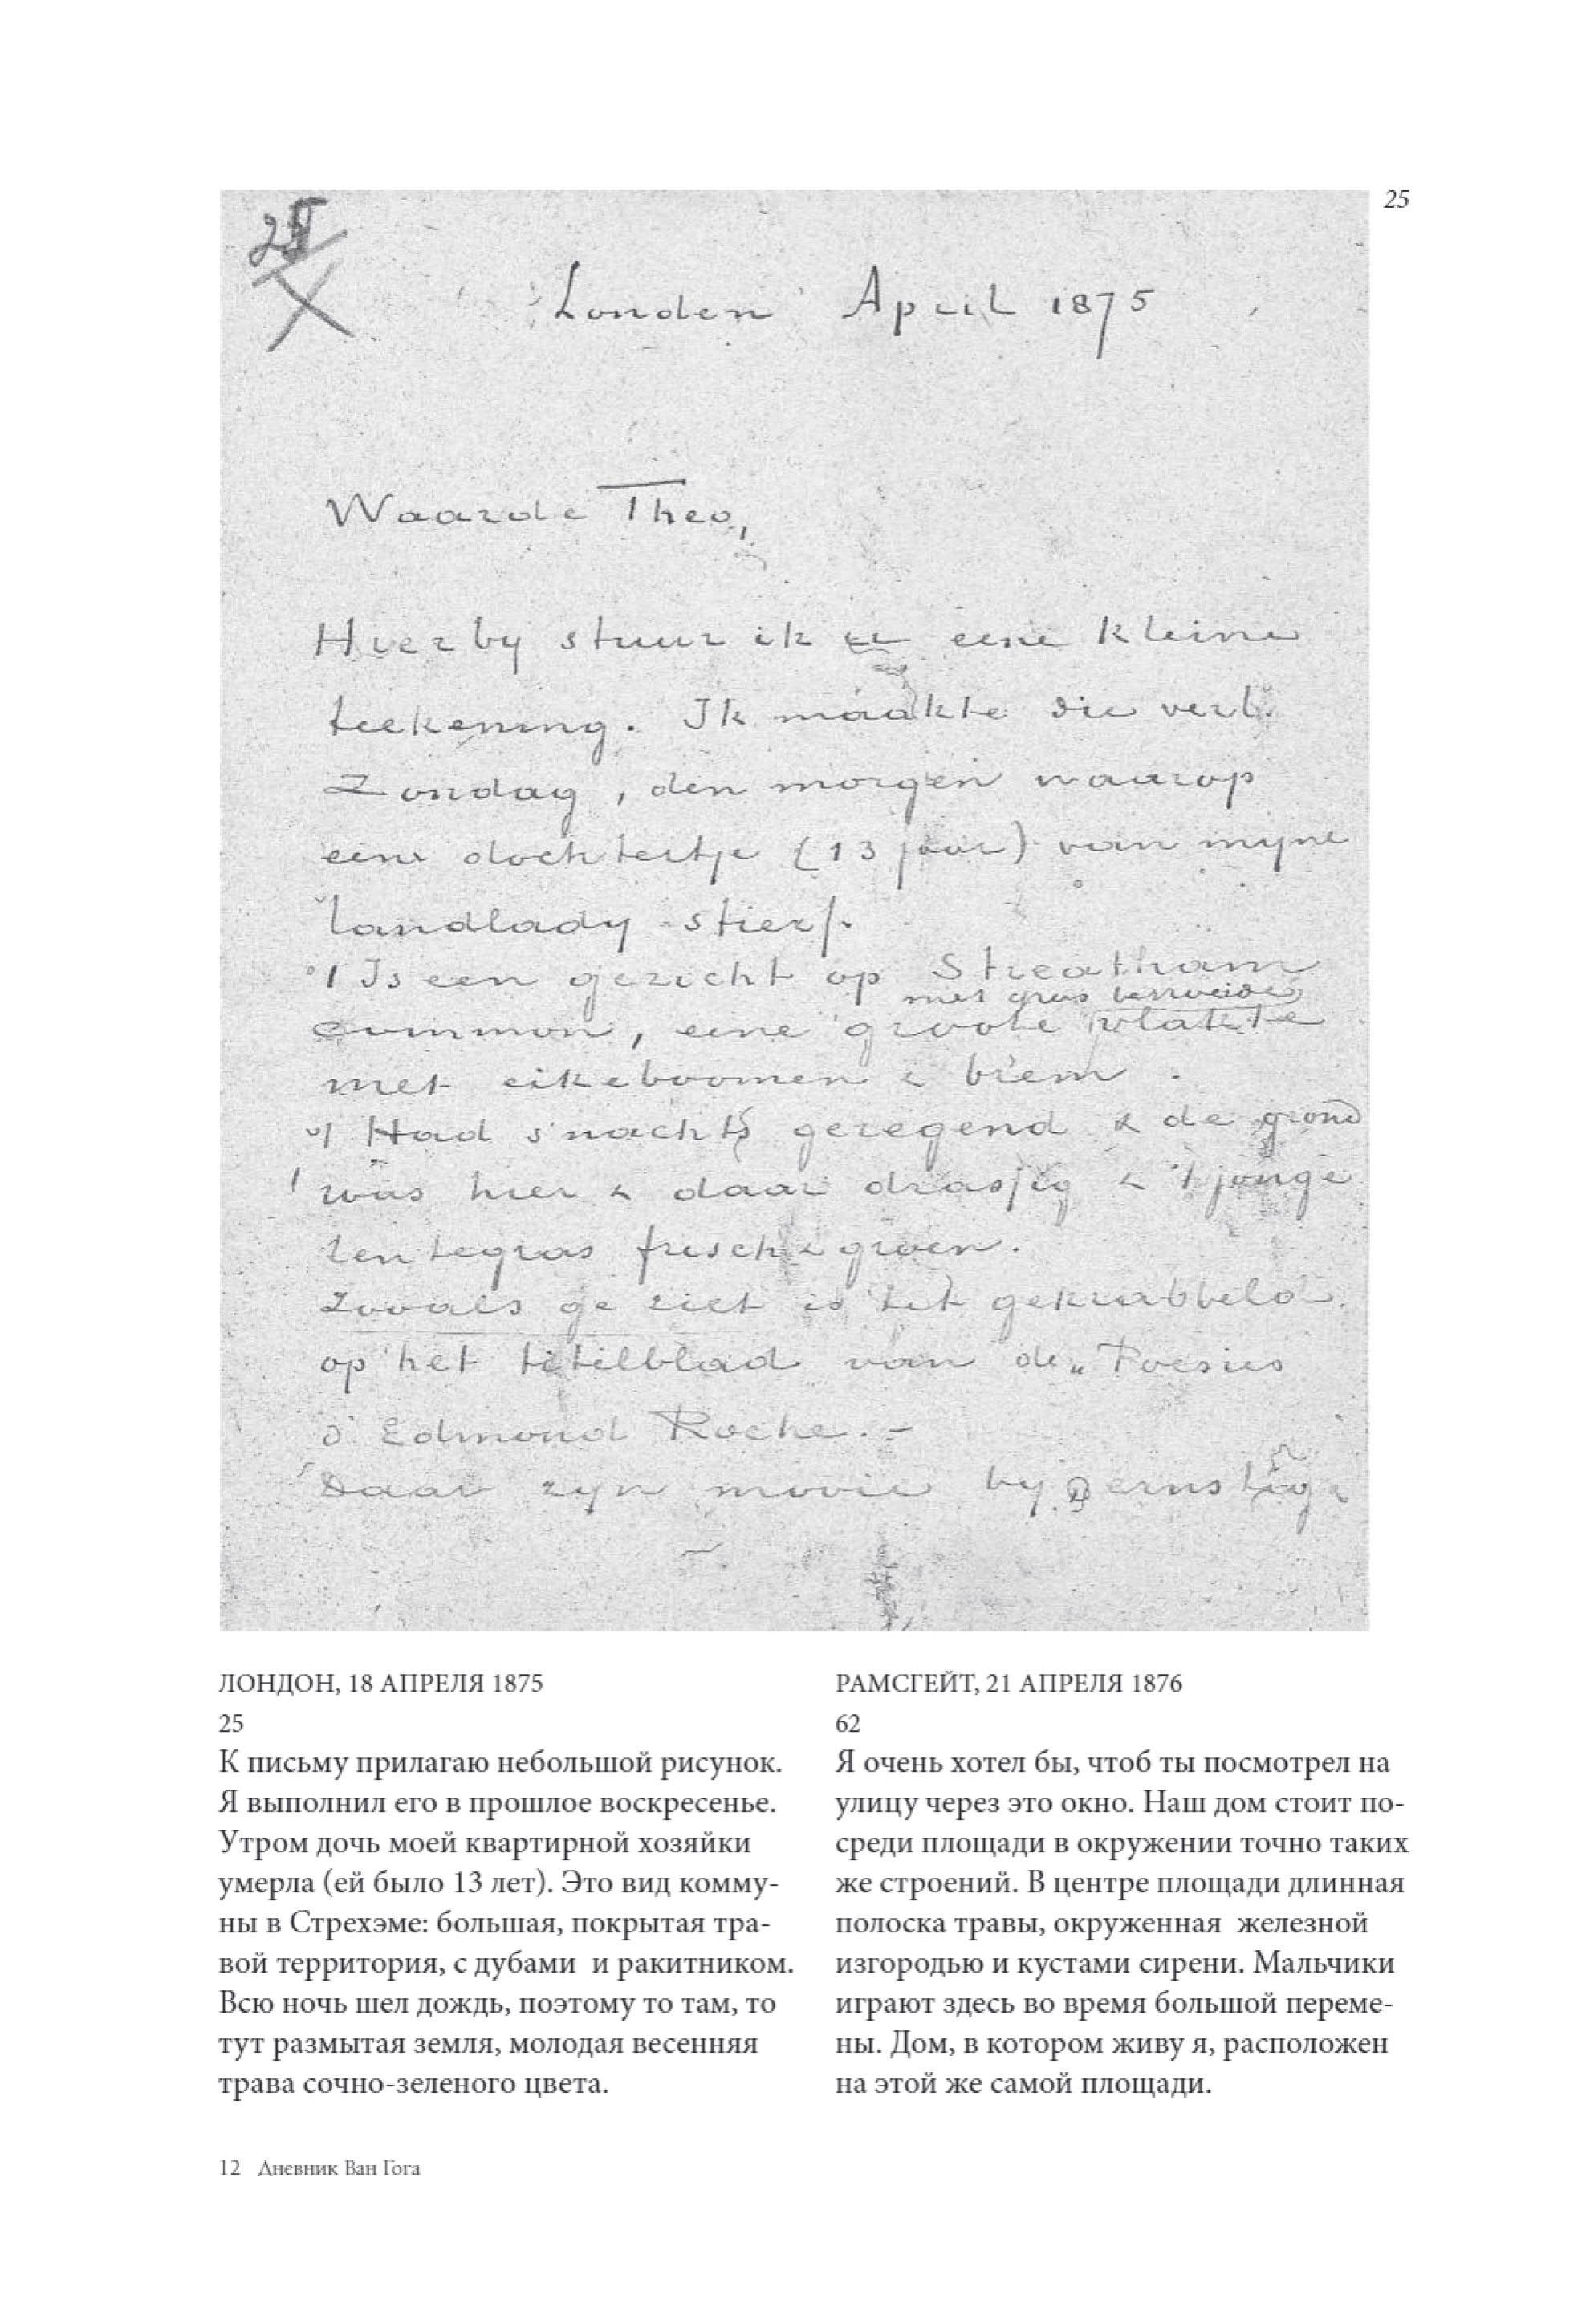 25
25
Londen April 1875
Waarde Theo,
Hierby stuur ik u eene kleine
teekening. Ik maakte die verl.
Zondag, den morgen waarop
een dochtertje (13 jaar) van myne
landlady stierf.
't Is een gezicht op Streatham
met gras
common, eene groote vlakte
met eikeboomen & brem.
't Had s'nachts geregend & de grond
was hier & daar drassig & 't jonge
lentegras frisch & groen.
Zooals ge ziet is het gekrabbeld
op het titelblad van de „Poesies
d'Edmond Roche.-
Daar zyn mooie by, ernstige
ЛОНДОН, 18 АПРЕЛЯ 1875
25
К письму прилагаю небольшой рисунок.
Я выполнил его в прошлое воскресенье.
Утром дочь моей квартирной хозяйки
умерла (ей было 13 лет). Это вид комму-
ны в Стрехэме: большая, покрытая тра-
вой территория, с дубами и ракитником.
Всю ночь шел дождь, поэтому то там, то
тут размытая земля, молодая весенняя
трава сочно-зеленого цвета.
РАМСГЕЙТ, 21 АПРЕЛЯ 1876
62
Я очень хотел бы, чтоб ты посмотрел на
улицу через это окно. Наш дом стоит по-
среди площади в окружении точно таких
же строений. В центре площади длинная
полоска травы, окруженная железной
изгородью и кустами сирени. Мальчики
играют здесь во время большой переме-
ны. Дом, в котором живу я, расположен
на этой же самой площади.
12 Дневник Ван Гога